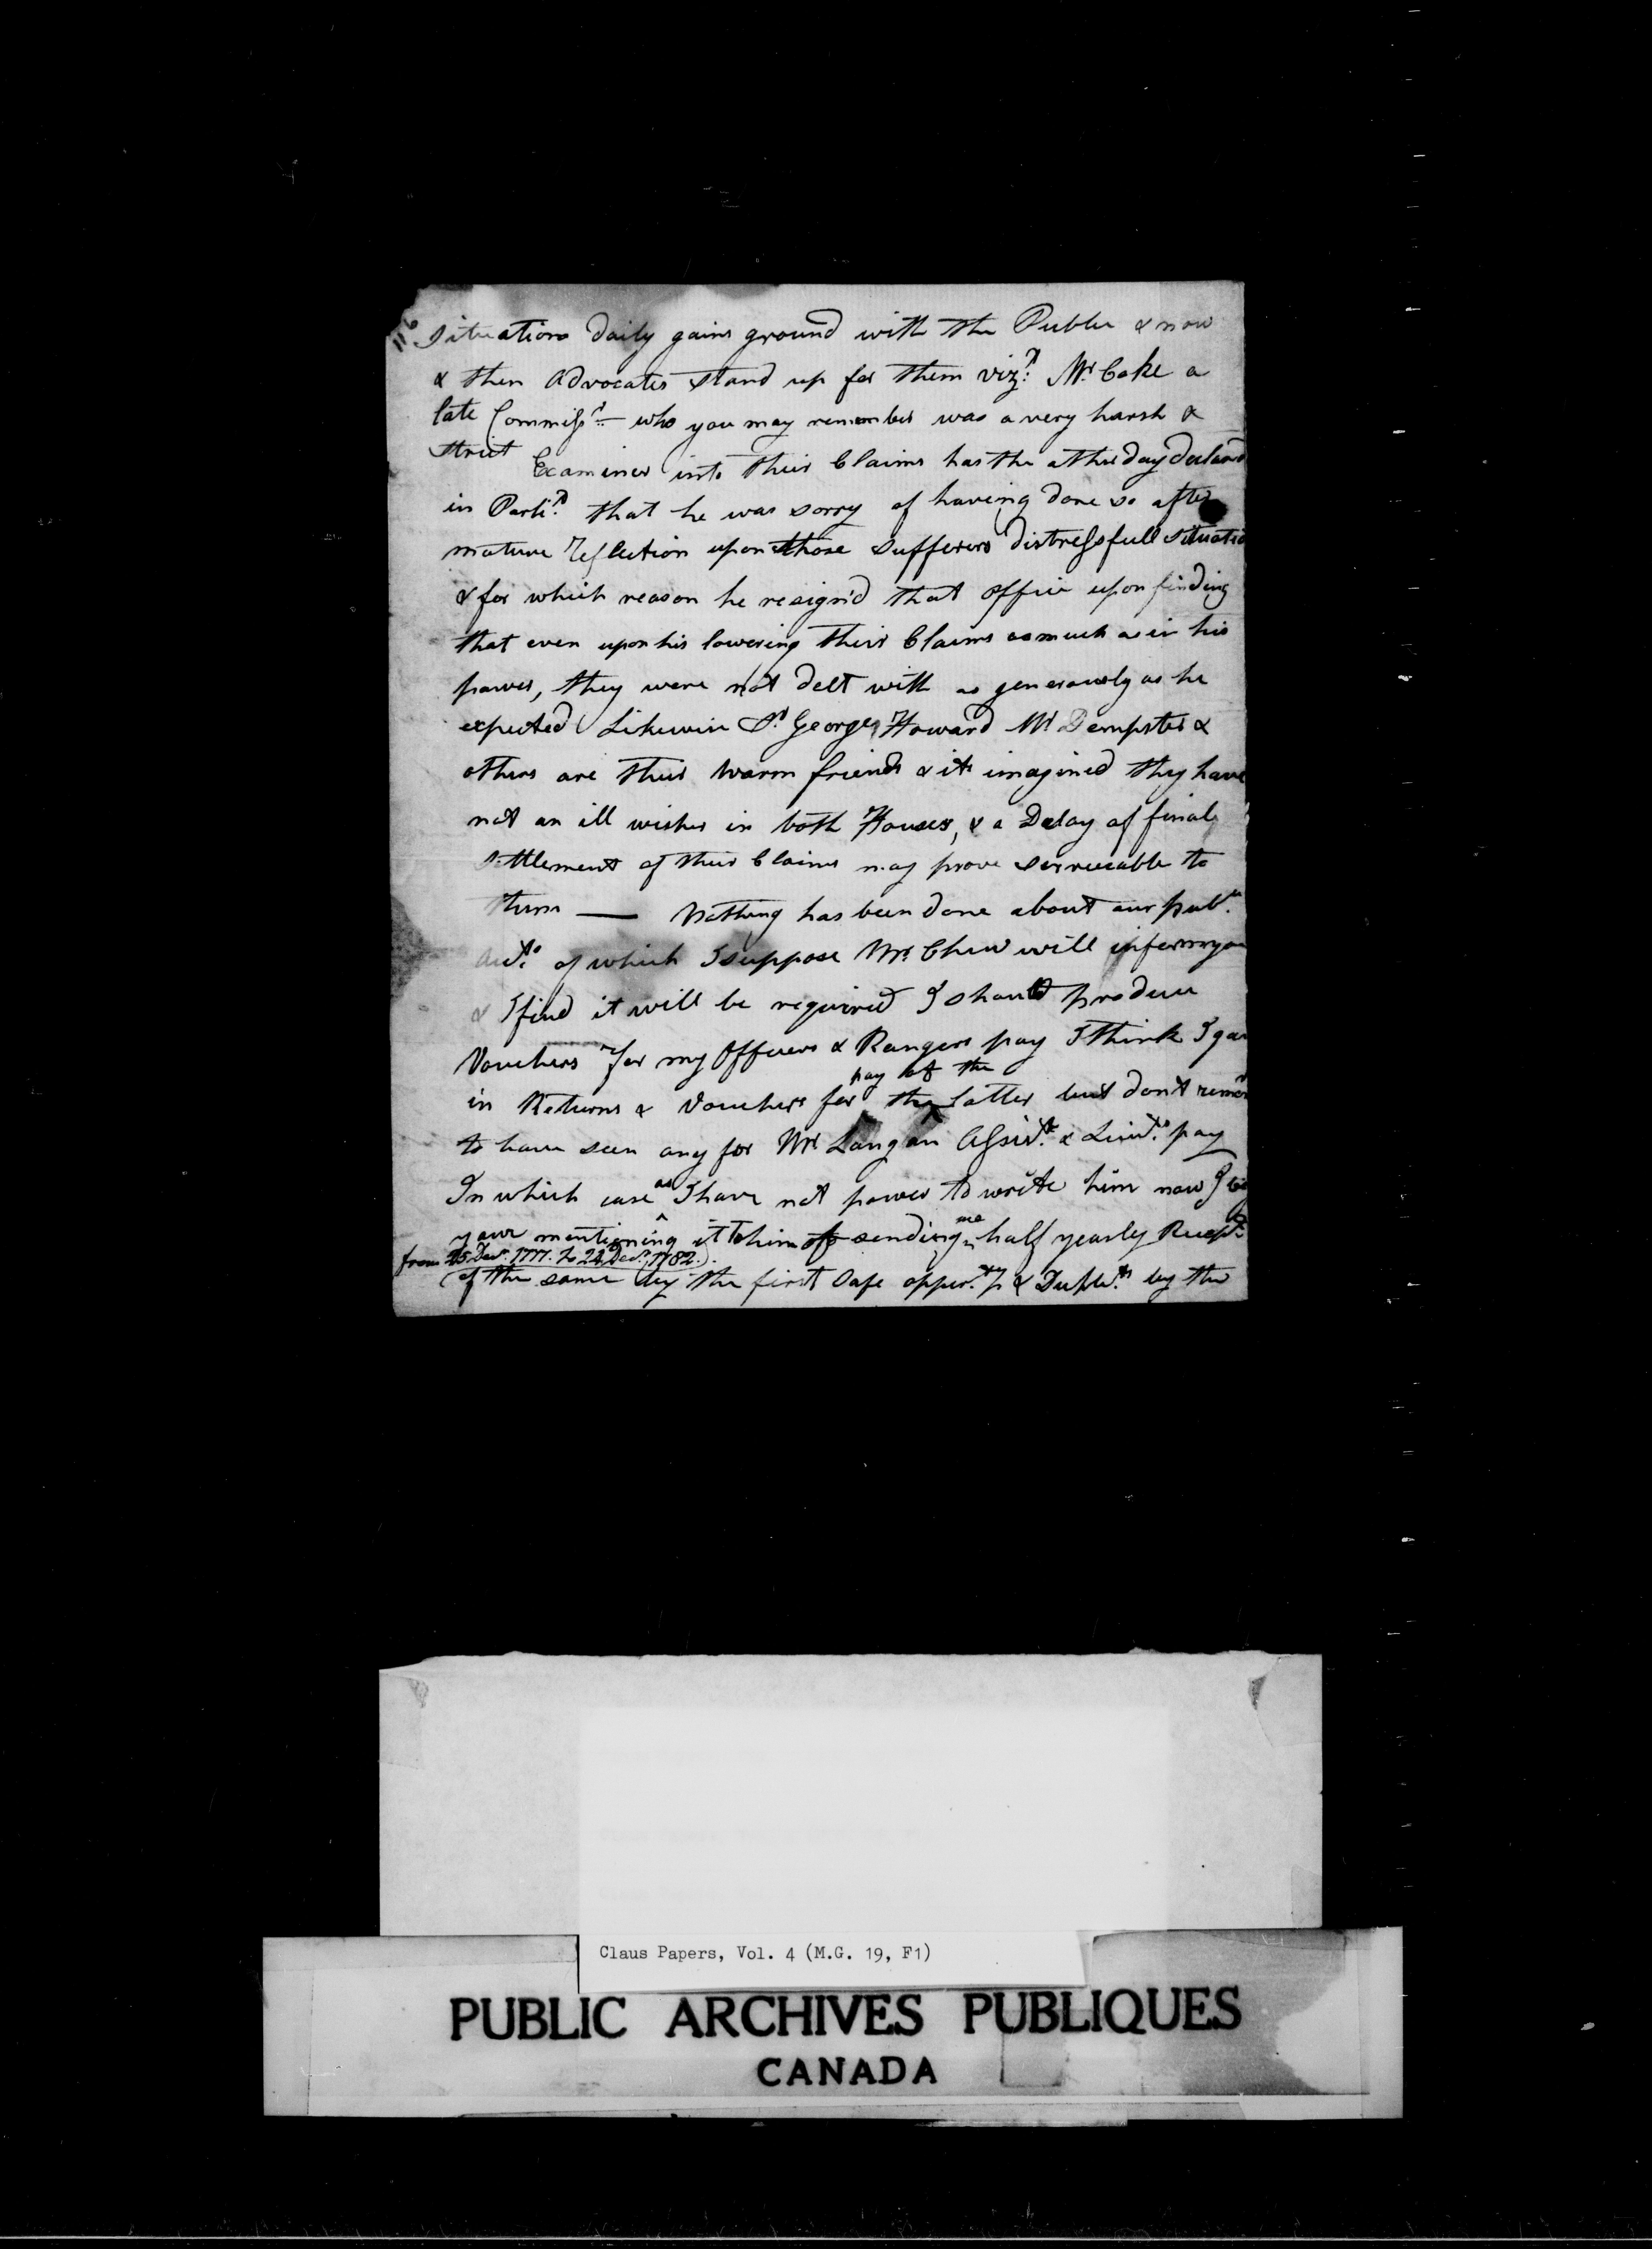 116
Situation daily gains ground with the Public & now
& then Advocates stand up for them vizt. Mr. Coke a
late Commissr. who you may remember was a very harsh &
strict Examiner into their Claims has the other day declared
in Parlt. that he was sorry of having done so after
mature reflection upon those Sufferers distressfull situatio
& for which reason he resign'd that Office upon finding
that even upon his lowering their Claims as much as in his
power, they were not delt with as generously as he
expected Likewise Sr. George Howard Mr Dempster &
others are their warm friends & its imagined they have
not an ill wisher in both Houses, & a Delay of final
settlement of their Claims may prove serviceable to
them — Nothing has been done about our pub.
Acts. of which I suppose Mr. Chew will inform you
& I find it will be required I should produce
Vouchers for my Officers & Rangers pay I think I gav
pay of the
in Returns & Vouchers for the latter but dont remr
to have seen any for Mr. Langan Assistt. & Lieuts. pay
In which case as I have not power to write him now I beg
your mentioning it to him of sending me half yearly Recepts.
from 25 Decr. 1777. to 24 Decr. 1782.
of the same by the first safe opperty. & Duplicts. by the
Claus Papers, Vol. 4 (M.G. 19, F1)
PUBLIC ARCHIVES PUBLIQUES
CANADA